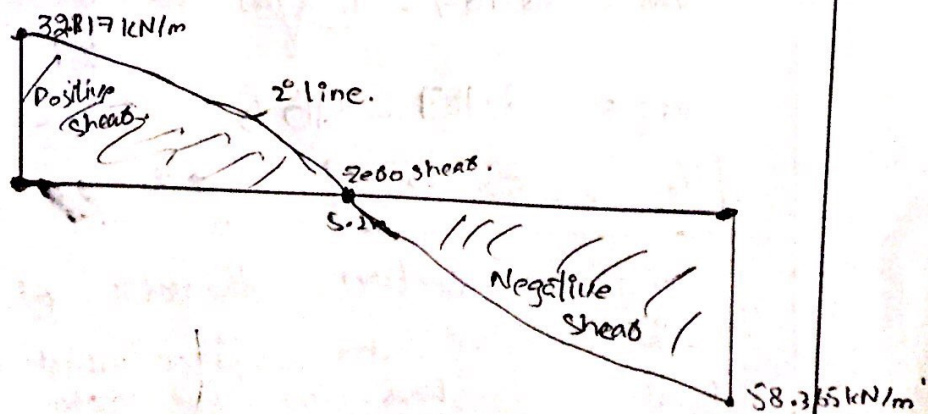 32.817 kN/m
Positive
shear
2° line.
Zero shear.
5.2m
Negative
shear
58.365 kN/m